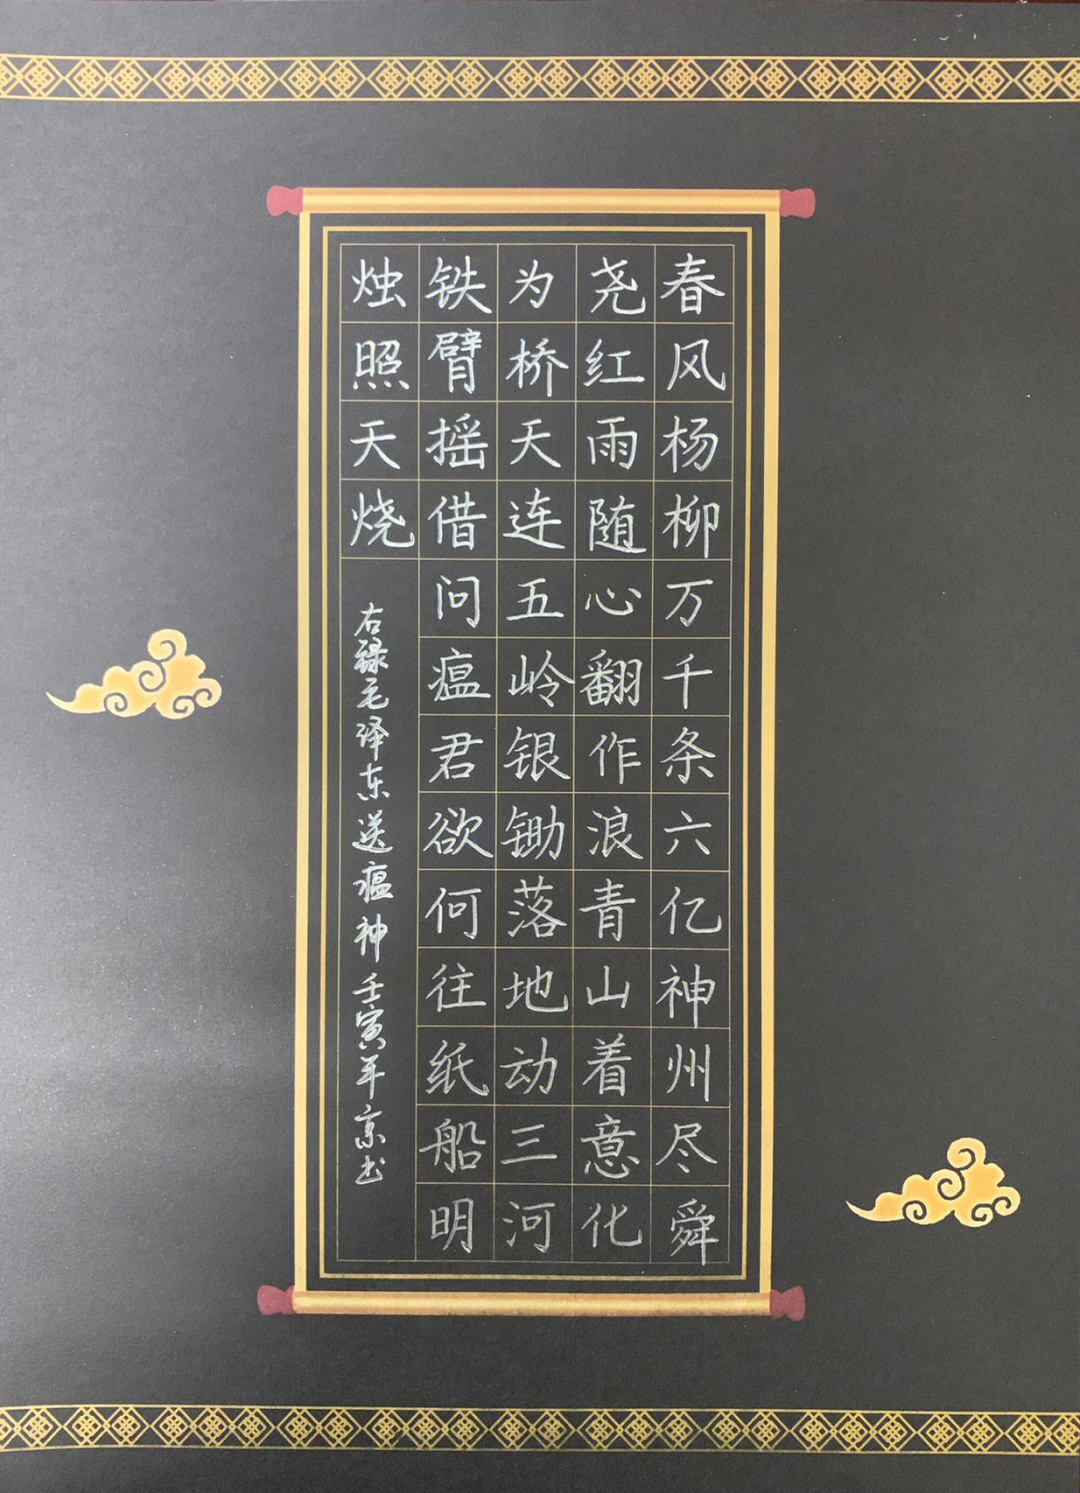 春风杨柳万千条六亿神州尽舜
尧红雨随心翻作浪青山着意化
为桥天连五岭银锄落地动三河
铁臂摇借问瘟君欲何往纸船明
烛照天烧
右禄毛泽东送瘟神壬寅年京书